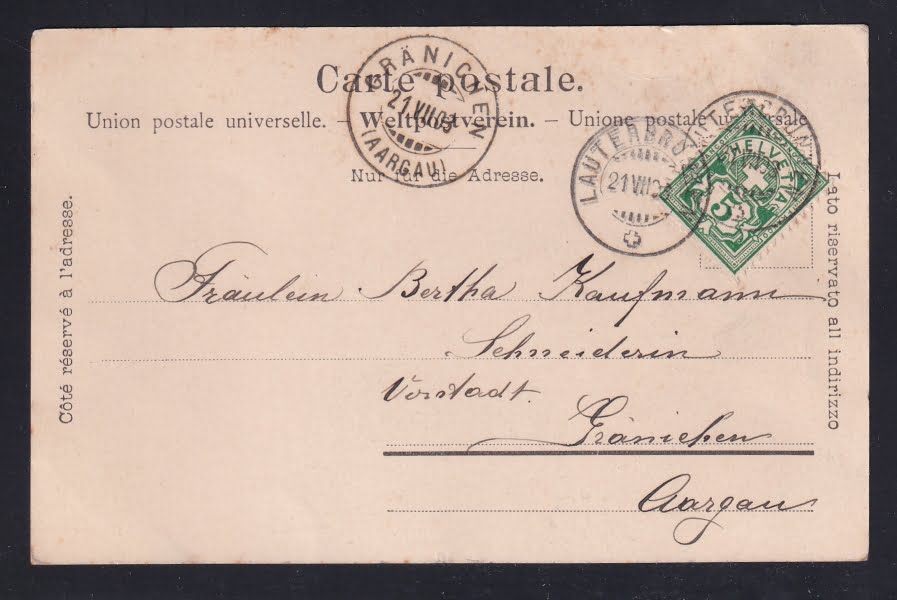 Carte postale.
Union postale universelle. – Weltpostverein. – Unione postale universale
Nur für die Adresse.
GRÄNICHEN
21.VII.03
(AARGAU)
LAUTERBRUNNEN
21.VII.03
HELVETIA
5
Côté réservé à l'adresse.
Lato riservato all indirizzo
Fräulein Bertha Kaufmann
Schneiderin
Vorstadt.
Gränichen
Aargau